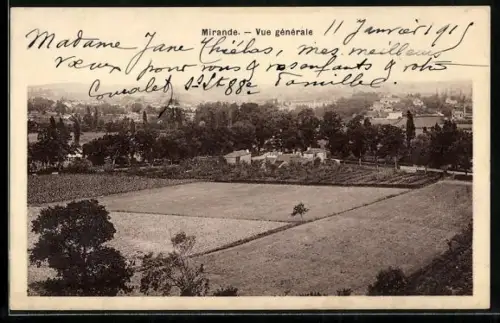 Mirande. — Vue générale
11 Janvier 1915
Madame Jane Thiélas, mes meilleurs
vœux pour vous & vos enfants & votre
Famille.